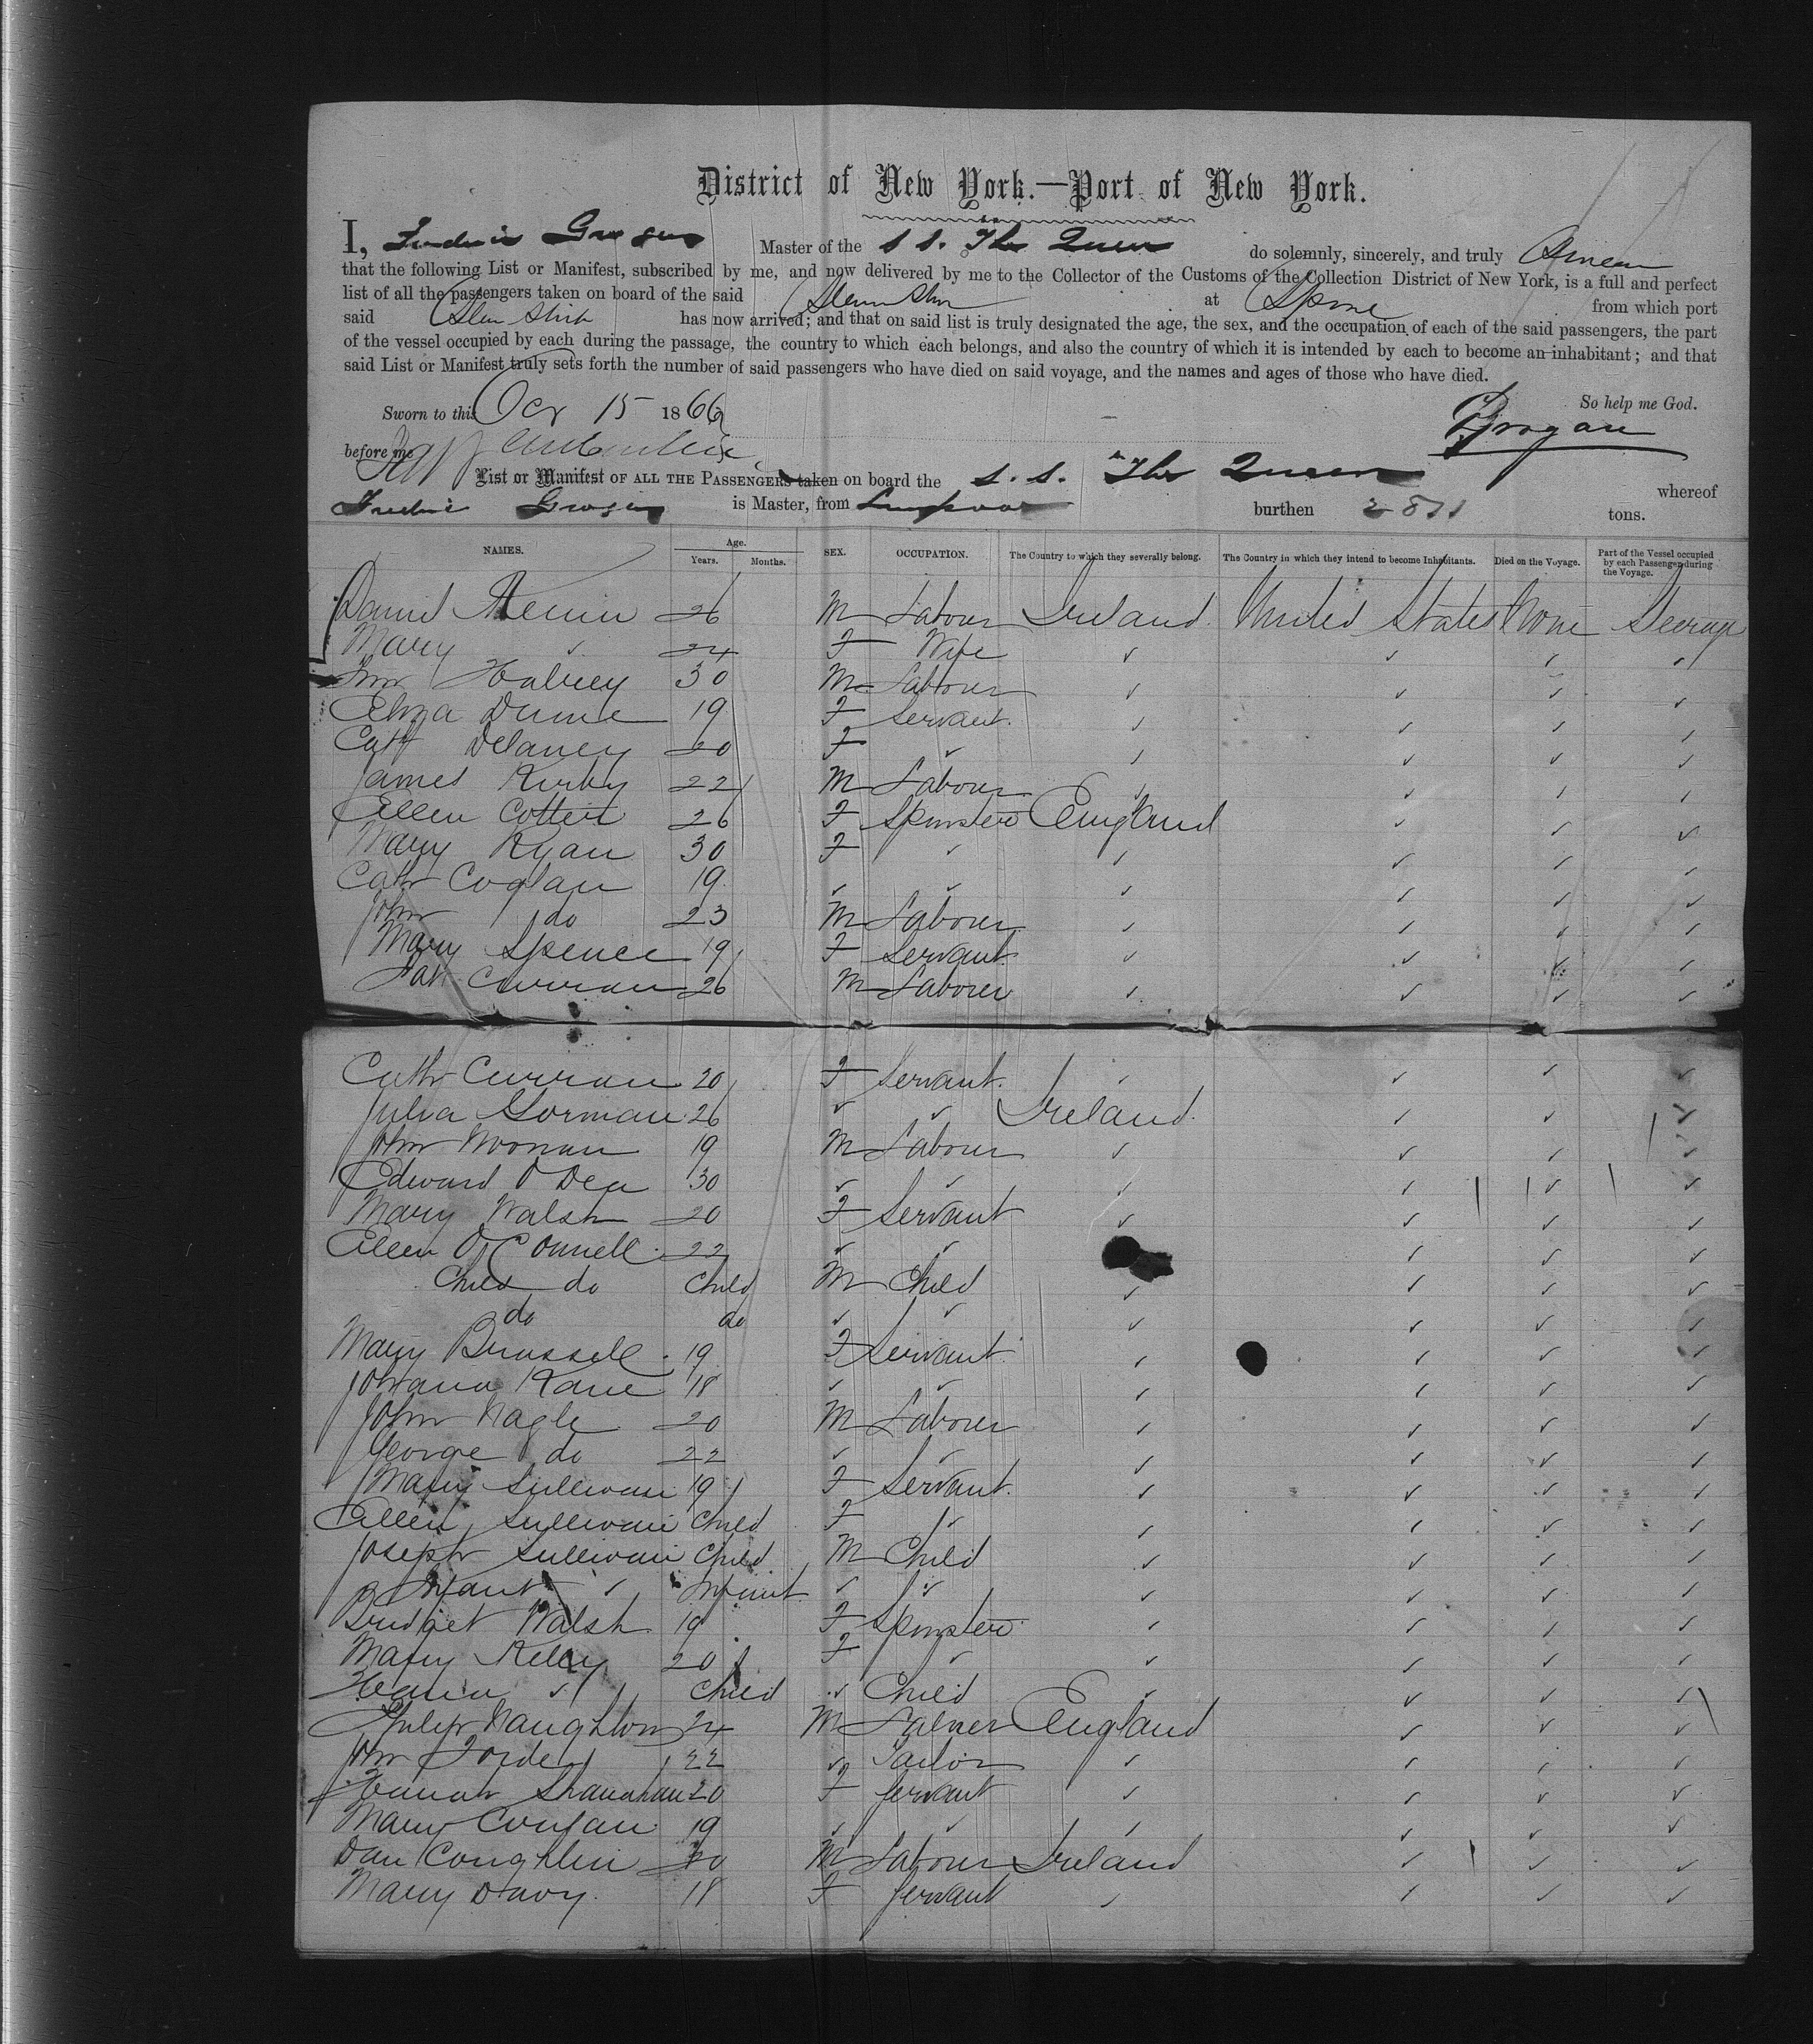 District of New York.—Port of New York.
I, Master of the S S. The Queen do solemnly, sincerely, and truly
that the following List or Manifest, subscribed by me, and now delivered by me to the Collector of the Customs of the Collection District of New York, is a full and perfect
list of all the passengers taken on board of the said at from which port
said has now arrived; and that on said list is truly designated the age, the sex, and the occupation of each of the said passengers, the part
of the vessel occupied by each during the passage, the country to which each belongs, and also the country of which it is intended by each to become an inhabitant; and that
said List or Manifest truly sets forth the number of said passengers who have died on said voyage, and the names and ages of those who have died.
So help me God.
Sworn to this Oct 15 1866
before me
List or Manifest OF ALL THE PASSENGERS taken on board the S. S. "The Queen whereof
is Master, from burthen tons.
NAMES. Age. Years. Months. SEX. OCCUPATION. The Country to which they severally belong. The Country in which they intend to become Inhabitants. Died on the Voyage. Part of the Vessel occupied by each Passenger during the Voyage.
26 M Labour Ireland United States None
Mary ✓ 24 F Wife ✓ ✓ ✓ ✓
30 M Labour ✓ ✓ ✓ ✓
19 F Servant ✓ ✓ ✓ ✓
Cath Delaney 20 F ✓ ✓ ✓ ✓ ✓
James Kirby 22 M Labour ✓ ✓ ✓ ✓
Ellen 26 F Spinster England ✓ ✓ ✓
Mary Ryan 30 F ✓ ✓ ✓ ✓ ✓
Cath Coglan 19 ✓ ✓ ✓ ✓ ✓ ✓
John do 23 M Labour ✓ ✓ ✓ ✓
Mary Spence 19 F Servant ✓ ✓ ✓ ✓
Pat Curran 26 M Laborer ✓ ✓ ✓ ✓
Cath Curran 20 F Servant ✓ ✓ ✓ ✓
Julia Gorman 26 ✓ ✓ Ireland ✓ ✓ ✓
John Noonan 19 M Labour ✓ ✓ ✓ ✓
Edward O Dea 30 ✓ ✓ ✓ ✓ ✓ ✓
Mary Walsh 20 F Servant ✓ ✓ ✓ ✓
Ellen O Connell 22 ✓ ✓ ✓ ✓ ✓
Child do Child M Child ✓ ✓ ✓ ✓
do do ✓ ✓ ✓ ✓ ✓ ✓
Mary 19 F Servant ✓ ✓ ✓ ✓
Johana Kane 18 ✓ ✓ ✓ ✓ ✓ ✓
John Nagle 20 M Labour ✓ ✓ ✓ ✓
George do 22 ✓ ✓ ✓ ✓ ✓ ✓
Mary Sullivan 19 F Servant ✓ ✓ ✓ ✓
Ellen Sullivan Child F ✓ ✓ ✓ ✓ ✓
Joseph Sullivan Child M Child ✓ ✓ ✓ ✓
Infant ✓ Infant ✓ ✓ ✓ ✓ ✓ ✓
Bridget Walsh 19 F Spinster ✓ ✓ ✓ ✓
Mary Kelly 20 F ✓ ✓ ✓ ✓ ✓
✓ Child ✓ Child ✓ ✓ ✓ ✓
Naughton 24 M England ✓ ✓ ✓
John 22 ✓ Tailor ✓ ✓ ✓ ✓
Shanahan 20 F Servant ✓ ✓ ✓ ✓
Mary 19 ✓ ✓ ✓ ✓ ✓ ✓
Dan Coughlin M Labour Ireland ✓ ✓ ✓
Mary Davy 18 F Servant ✓ ✓ ✓ ✓